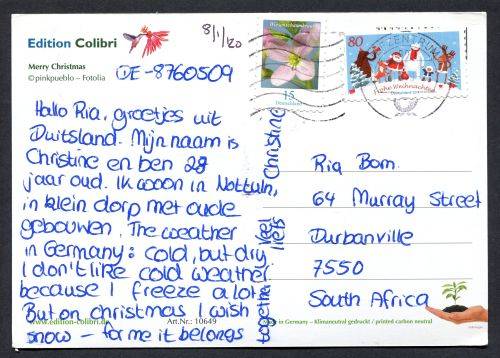 Edition Colibri
Merry Christmas
©pinkpueblo – Fotolia
8/1/20
DE-8760509
15
Deutschland
80
Frohe Weihnachten
Hallo Ria, groetjes uit
Duitsland. Mijn naam is
Christine en ben 28
jaar oud. Ik woon in Nottuln,
in klein dorp met oude
gebouwen. The weather
in Germany: cold, but dry
I don't like cold weather
because I freeze a lot.
But on christmas I wish
snow – for me it belongs
together
Veel liefs
Christine
Ria Bom
64 Murray Street
Durbanville
7550
South Africa
www.edition-colibri.de
Art.Nr.: 10649
in Germany – Klimaneutral gedruckt / printed carbon neutral